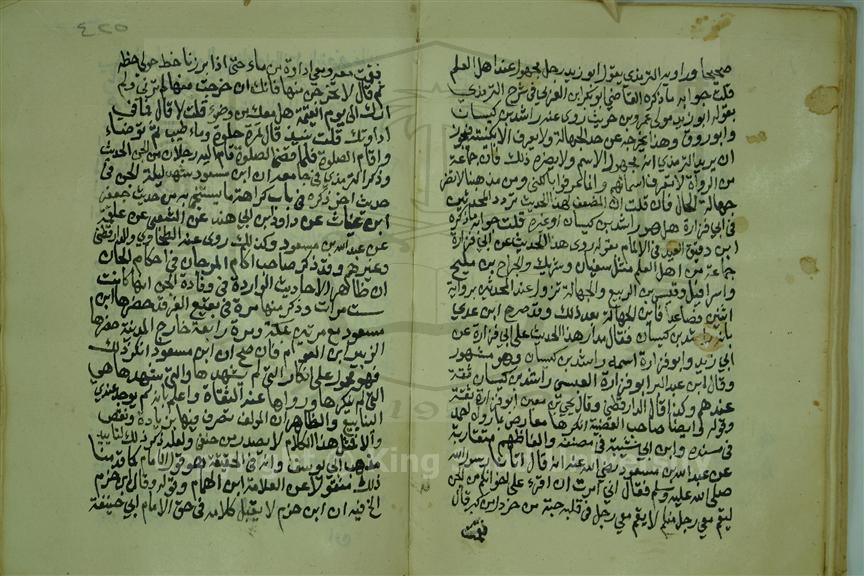 صحيحا وراويه الترمذي يقول ابو زيد رجل مجهول عند اهل العلم
قلت جوابه ما ذكره القاضي ابو بكر ابن العربي في شرح الترمذي
بقوله ابو زيد مولى عمرو بن حريث روى عنه راشد بن كيسان
وابو روق وهذا يخرجه عن حد الجهالة ولا يعرف الا بكنيته فيجوز
ان يريد الترمذي انه مجهول الاسم ولا يضره ذلك فان جماعة
من الرواة لا تعرف اسمائهم وانما عرفوا بالكنى ومن مذهبنا لا تضر
جهالة الحال فان قلت ان المضعف لهذا الحديث تردد المحدثين
في ابي فزارة هل هو راشد بن كيسان او غيره قلت جوابه ما ذكره
ابن دقيق العيد في الامام بقوله روى هذا الحديث عن ابي فزارة
جماعة من اهل العلم مثل سفيان وشريك والجراح بن مليح
واسرائيل وقيس بن الربيع والجهالة تزول عند المحدثين برواية
اثنين فصاعدا فاين الجهالة بعد ذلك وقد صرح ابن عدي
بانه راشد بن كيسان فقال مدار هذا الحديث على ابي فزارة عن
ابي زيد وابو فزارة اسمه راشد بن كيسان وهو مشهور
وقال ابن عبد البر ابو فزارة العبسي راشد بن كيسان ثقة
عندهم وكذا قال الدارقطني وقال يحيى بن معين ابو فزارة ثقة
وقوله في ايضا صاحب القضية انكرها معارض بما رواه احمد
في مسنده وابن ابي شيبة في مصنفه والفاظهم متقاربة
عن عبد الله بن مسعود رضي الله عنه انه قال اتانا رسول الله
صلى الله عليه وسلم فقال اني امرت ان اقرء على اخوانكم من الجن
ليقم معي رجل منكم لا يقم معي رجل في قلبه حبة من خردل من كبر قال
فقمت
٤٢٥
فقمت معه ومعي اداوة بن ماء حتى اذا برزنا خط حولي خطة
ثم قال لا تخرجن منها فانك ان خرجت منها لم ترني ولم
ارك الى يوم القيمة هل معك من وضوء قلت لا قال فما في
اداوتك قلت نبيذ قال ثمرة حلوة وماء طيب ثم توضاء
واقام الصلوة فلما قضى الصلوة قام اليه رجلان من الجن الحديث
وذكر الترمذي في جامعه ان ابن مسعود شهد ليلة الجن في
حديث اخر ذكره في باب كراهة ما يستنجى به من حديث حفص
ابن غياث عن داود بن ابي هند عن الشعبي عن علقمة
عن عبد الله بن مسعود وكذلك روى عنه الطحاوي والدارقطني
وغيرهم وقد ذكر صاحب اكام المرجان في احكام الجان
ان ظاهر الاحاديث الواردة في وفادة الجن انها كانت
ست مرات وذكر منها مرة في بقيع الغرقد حضرها ابن
مسعود مع مرتين بمكة ومرة رابعة خارج المدينة حضرها
الزبير بن العوام فان صح ان ابن مسعود انكر ذلك
فهو محمول على انكار التي لم يشهدها والتي شهدها هي
التي لم ينكرها ورواها عنه الثقاة واعلم انه لم يوجد عندي
الينابيع والظاهر ان المولف تصرف فيها بن زيادة ونقص
والا فمثل هذا الكلام لا يصدر من حنفي ولعله ذكر ذلك لتاييد
مذهب ابي يوسف وانه في الحقيقة هو قول الامام كما قدمنا
ذلك منقولا عن العلامة ابن الهمام وقوله وقال ابن حزم
الخ فيه ان ابن حزم لا يقبل كلامه في حق الامام ابي حنيفة